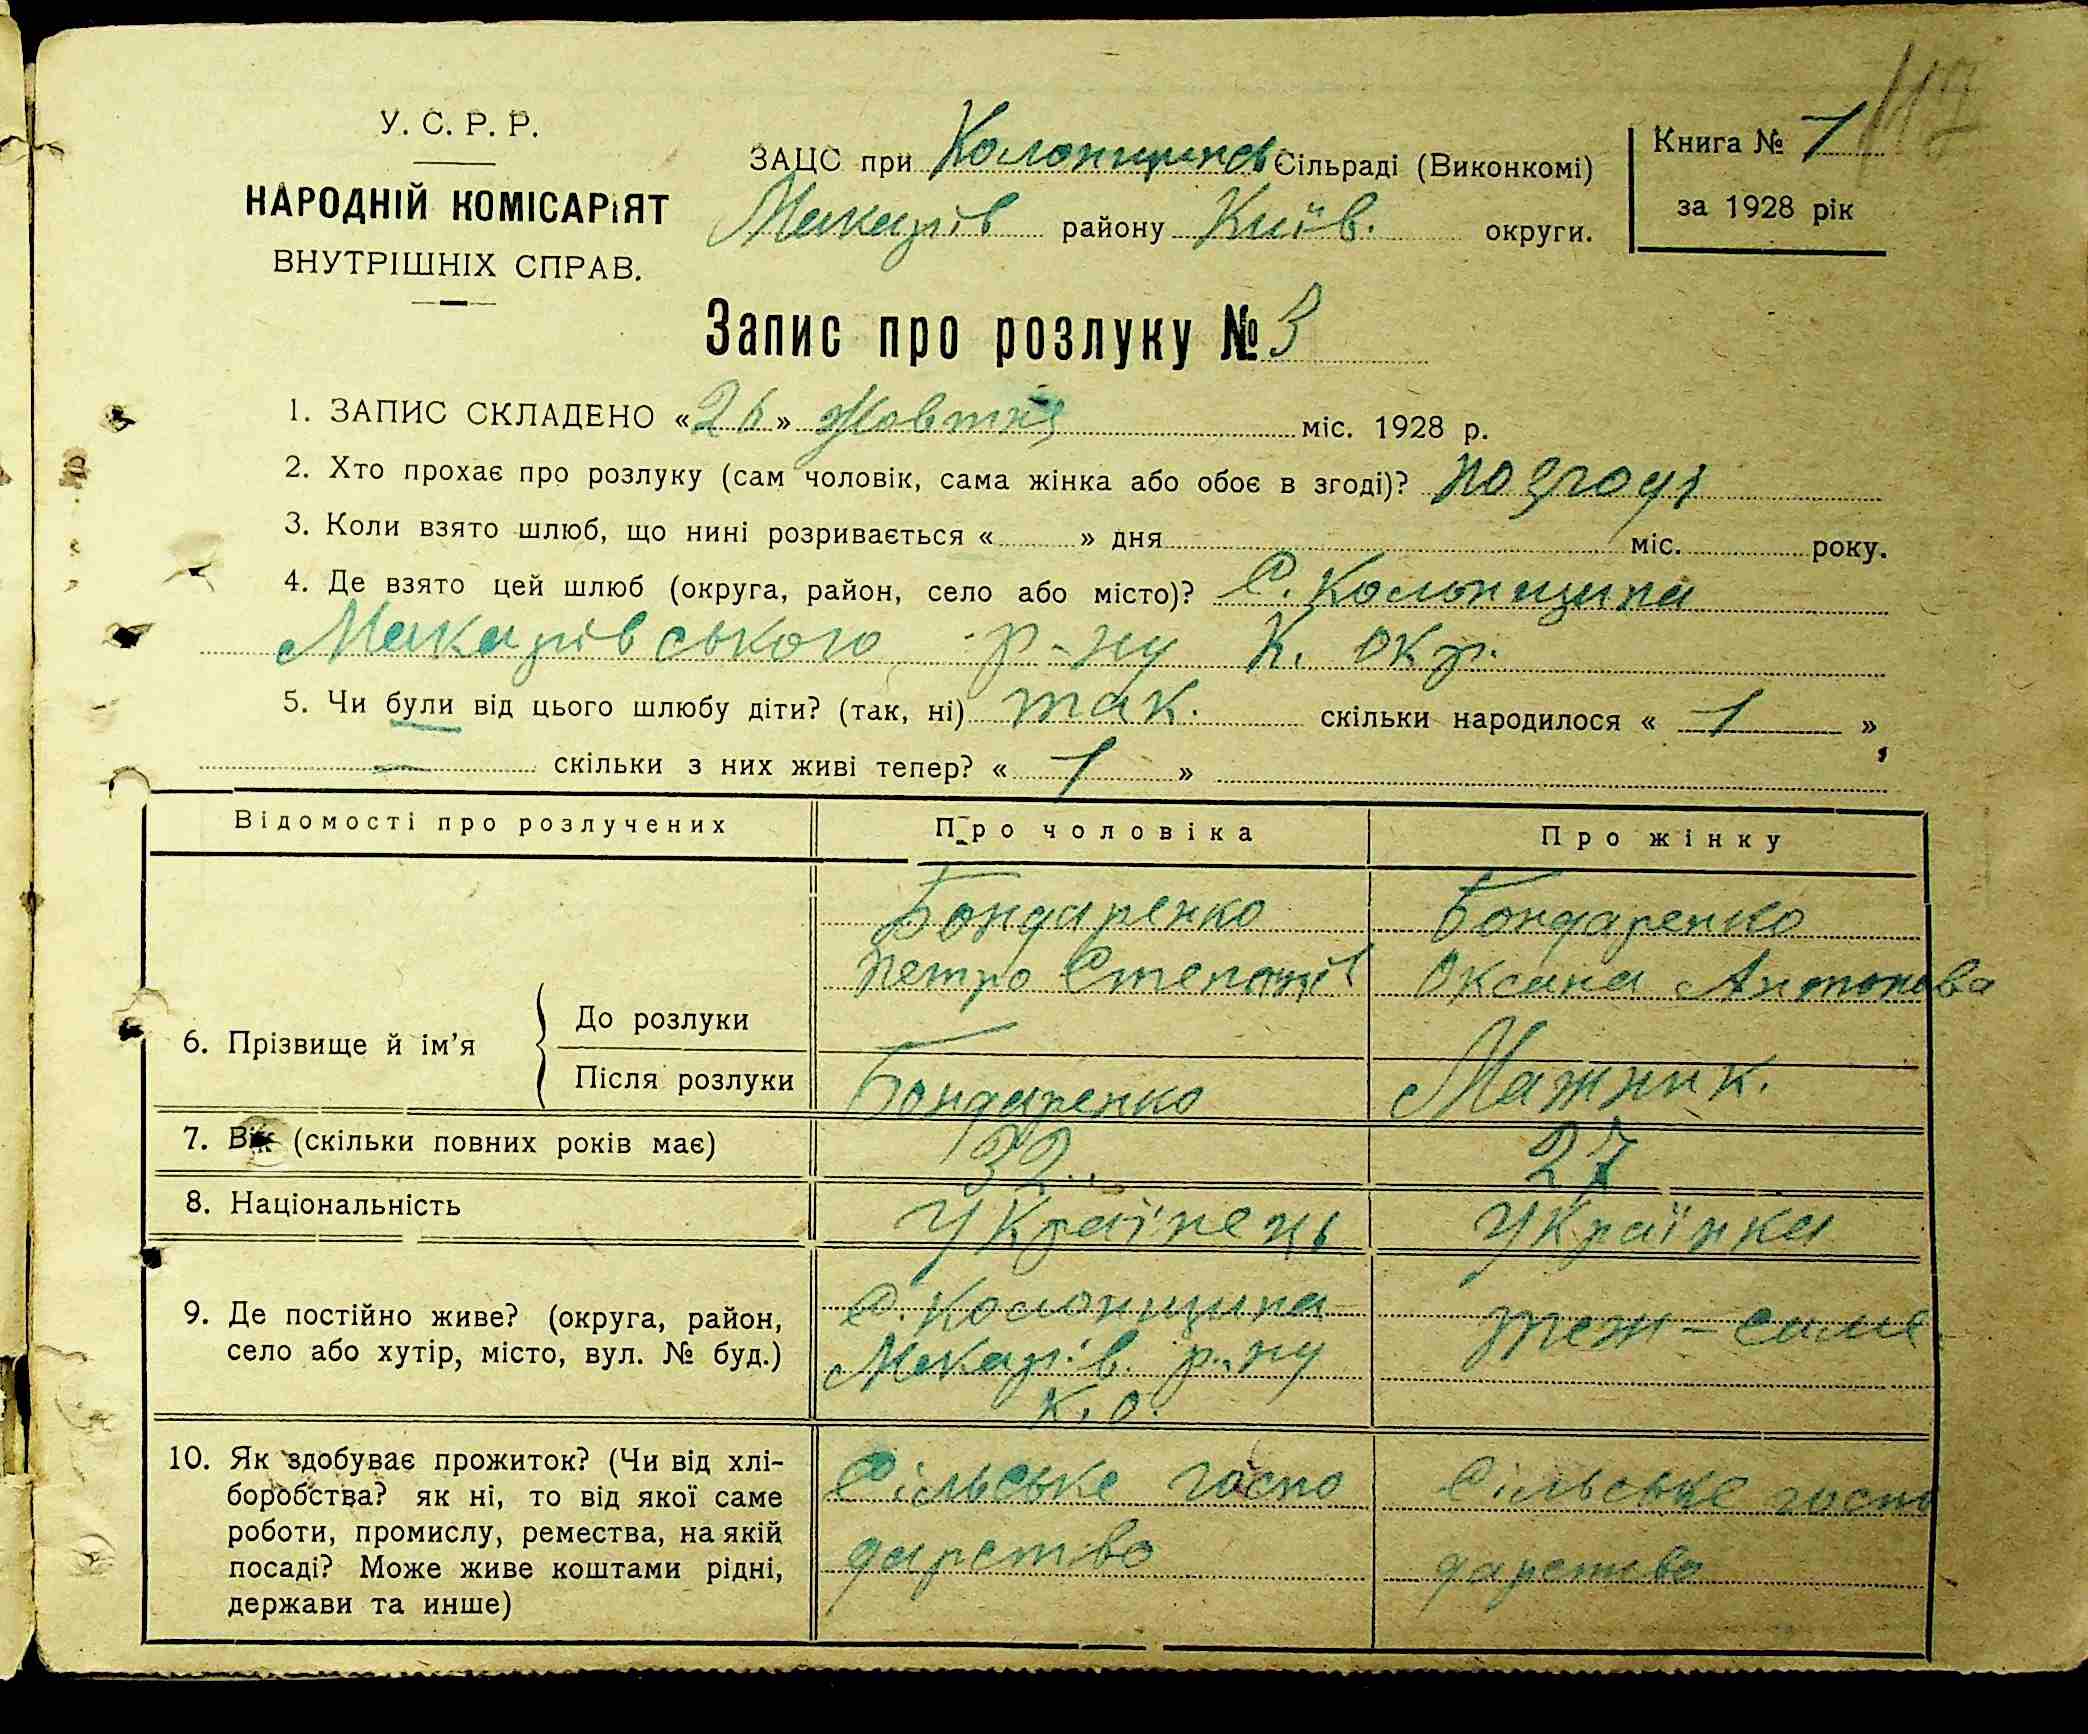 117
У. С. Р. Р.
НАРОДНІЙ КОМІСАРІЯТ
ВНУТРІШНІХ СПРАВ.
ЗАЦС при Колонщинс Сільраді (Виконкомі)
Макарів району Київ. округи.
Книга № 1
за 1928 рік
Запис про розлуку № 3
1. ЗАПИС СКЛАДЕНО «26» Жовтня міс. 1928 р.
2. Хто прохає про розлуку (сам чоловік, сама жінка або обоє в згоді)? по згоді
3. Коли взято шлюб, що нині розривається « » дня міс. року.
4. Де взято цей шлюб (округа, район, село або місто)? С. Колонщина
Макарівського р-ну К. окр.
5. Чи були від цього шлюбу діти? (так, ні) так. скільки народилося « 1 »,
— скільки з них живі тепер? « 1 »
Відомості про розлучених Про чоловіка Про жінку
Бондаренко Бондаренко
Петро Степанів Оксана Антонова
6. Прізвище й ім’я До розлуки
Після розлуки Бондаренко
7. Вік (скільки повних років має) 32. 27
8. Національність Українець Українка
9. Де постійно живе? (округа, район, село або хутір, місто, вул. № буд.) С. Колонщина Макарів. р-ну К. о. теж-саме
10. Як здобуває прожиток? (Чи від хлі-
боробства? як ні, то від якої саме
роботи, промислу, ремества, на якій
посаді? Може живе коштами рідні,
держави та инше)
Сільське госпо
дарство
Сільське госпо
дарство